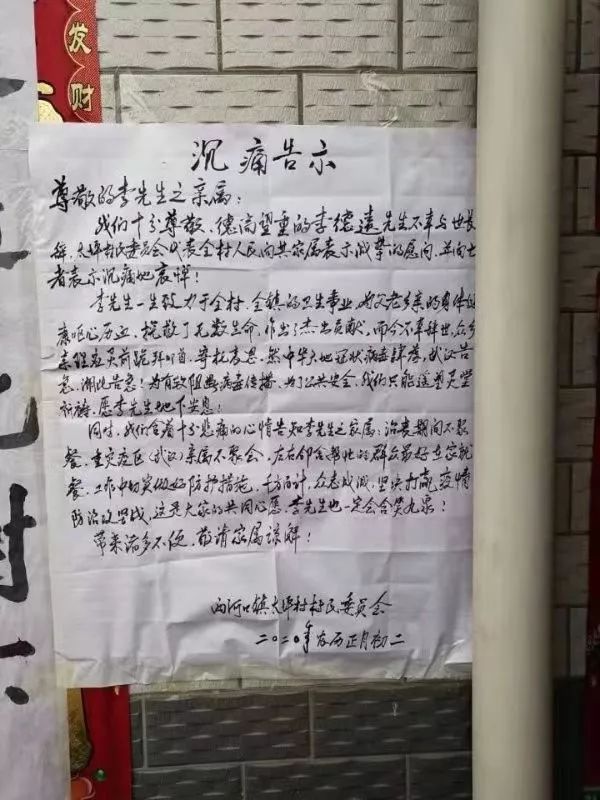 发
财
沉痛告示
尊敬的李先生之亲属:
我们十分尊敬、德高望重的李德远先生不幸与世长
辞,太坪村民委员会代表全村人民向其家属表示诚挚的慰问,并向亡
者表示沉痛地哀悼!
李先生一生致力于全村、全镇的卫生事业,为父老乡亲的身体健
康呕心历血,挽救了无数生命,作出了杰出贡献,而今不幸辞世,众乡
亲径应灵前跪拜叩首、寄托哀思,然中华大地冠状病毒肆虐,武汉告
急,湖北告急!为有效阻断病毒传播,为了公共安全,我们只能遥望灵堂
祈祷,愿李先生地下安息!
同时,我们含着十分悲痛的心情告知李先生之家属:治丧期间不聚
餐,重灾疫区(武汉)亲属不聚会,左右邻舍帮忙的群众最好在家就
餐,工作中切实做好防护措施,千方百计,众志成城,坚决打赢疫情
防治攻坚战,这是大家的共同心愿,李先生也一定会含笑九泉!
带来诸多不便,敬请家属谅解!
两河口镇太坪村村民委员会
二〇二〇年农历正月初二